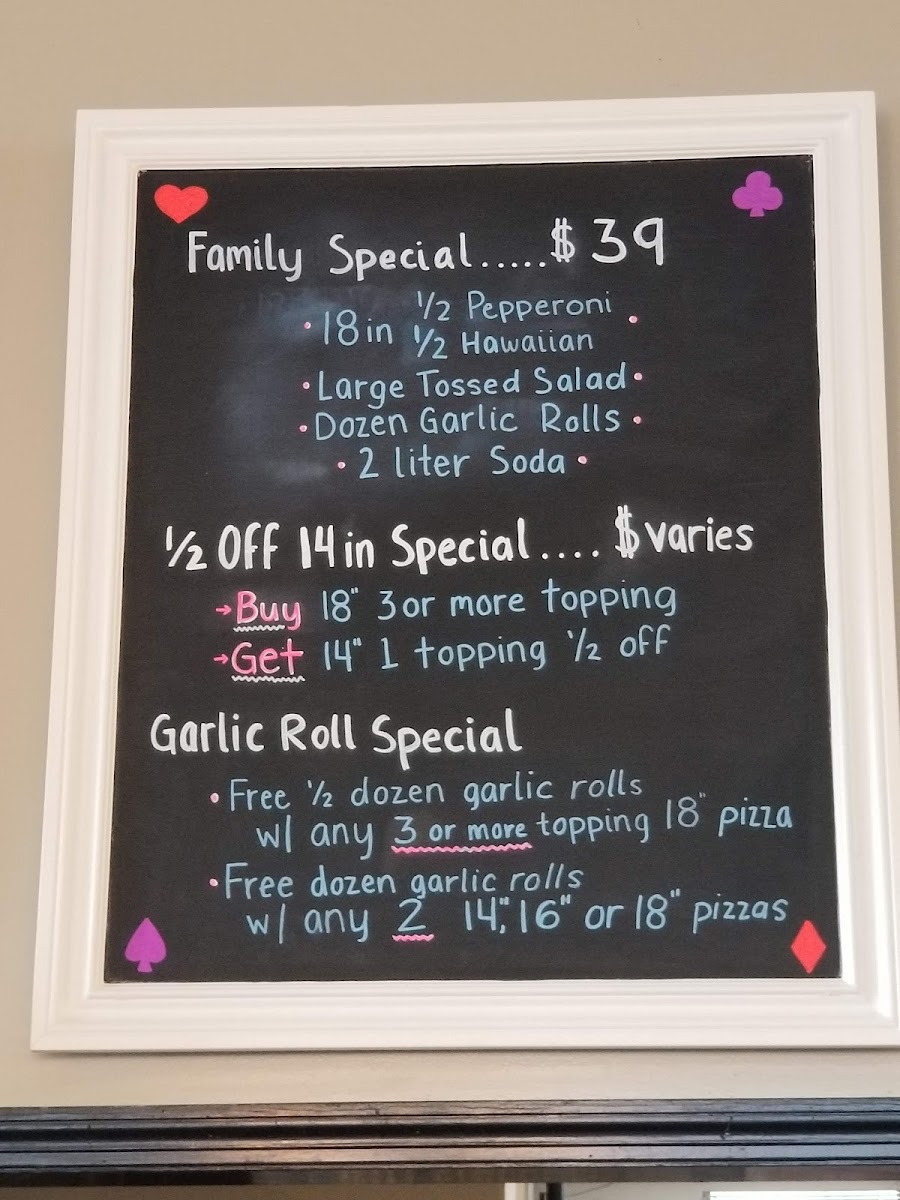 Family Special.....$39
• 18in 1/2 Pepperoni •
1/2 Hawaiian
• Large Tossed Salad •
• Dozen Garlic Rolls •
• 2 liter Soda •
1/2 Off 14in Special.... $varies
→Buy 18" 3 or more topping
→Get 14" 1 topping 1/2 off
Garlic Roll Special
• Free 1/2 dozen garlic rolls
w/ any 3 or more topping 18" pizza
• Free dozen garlic rolls
w/ any 2 14", 16" or 18" pizzas